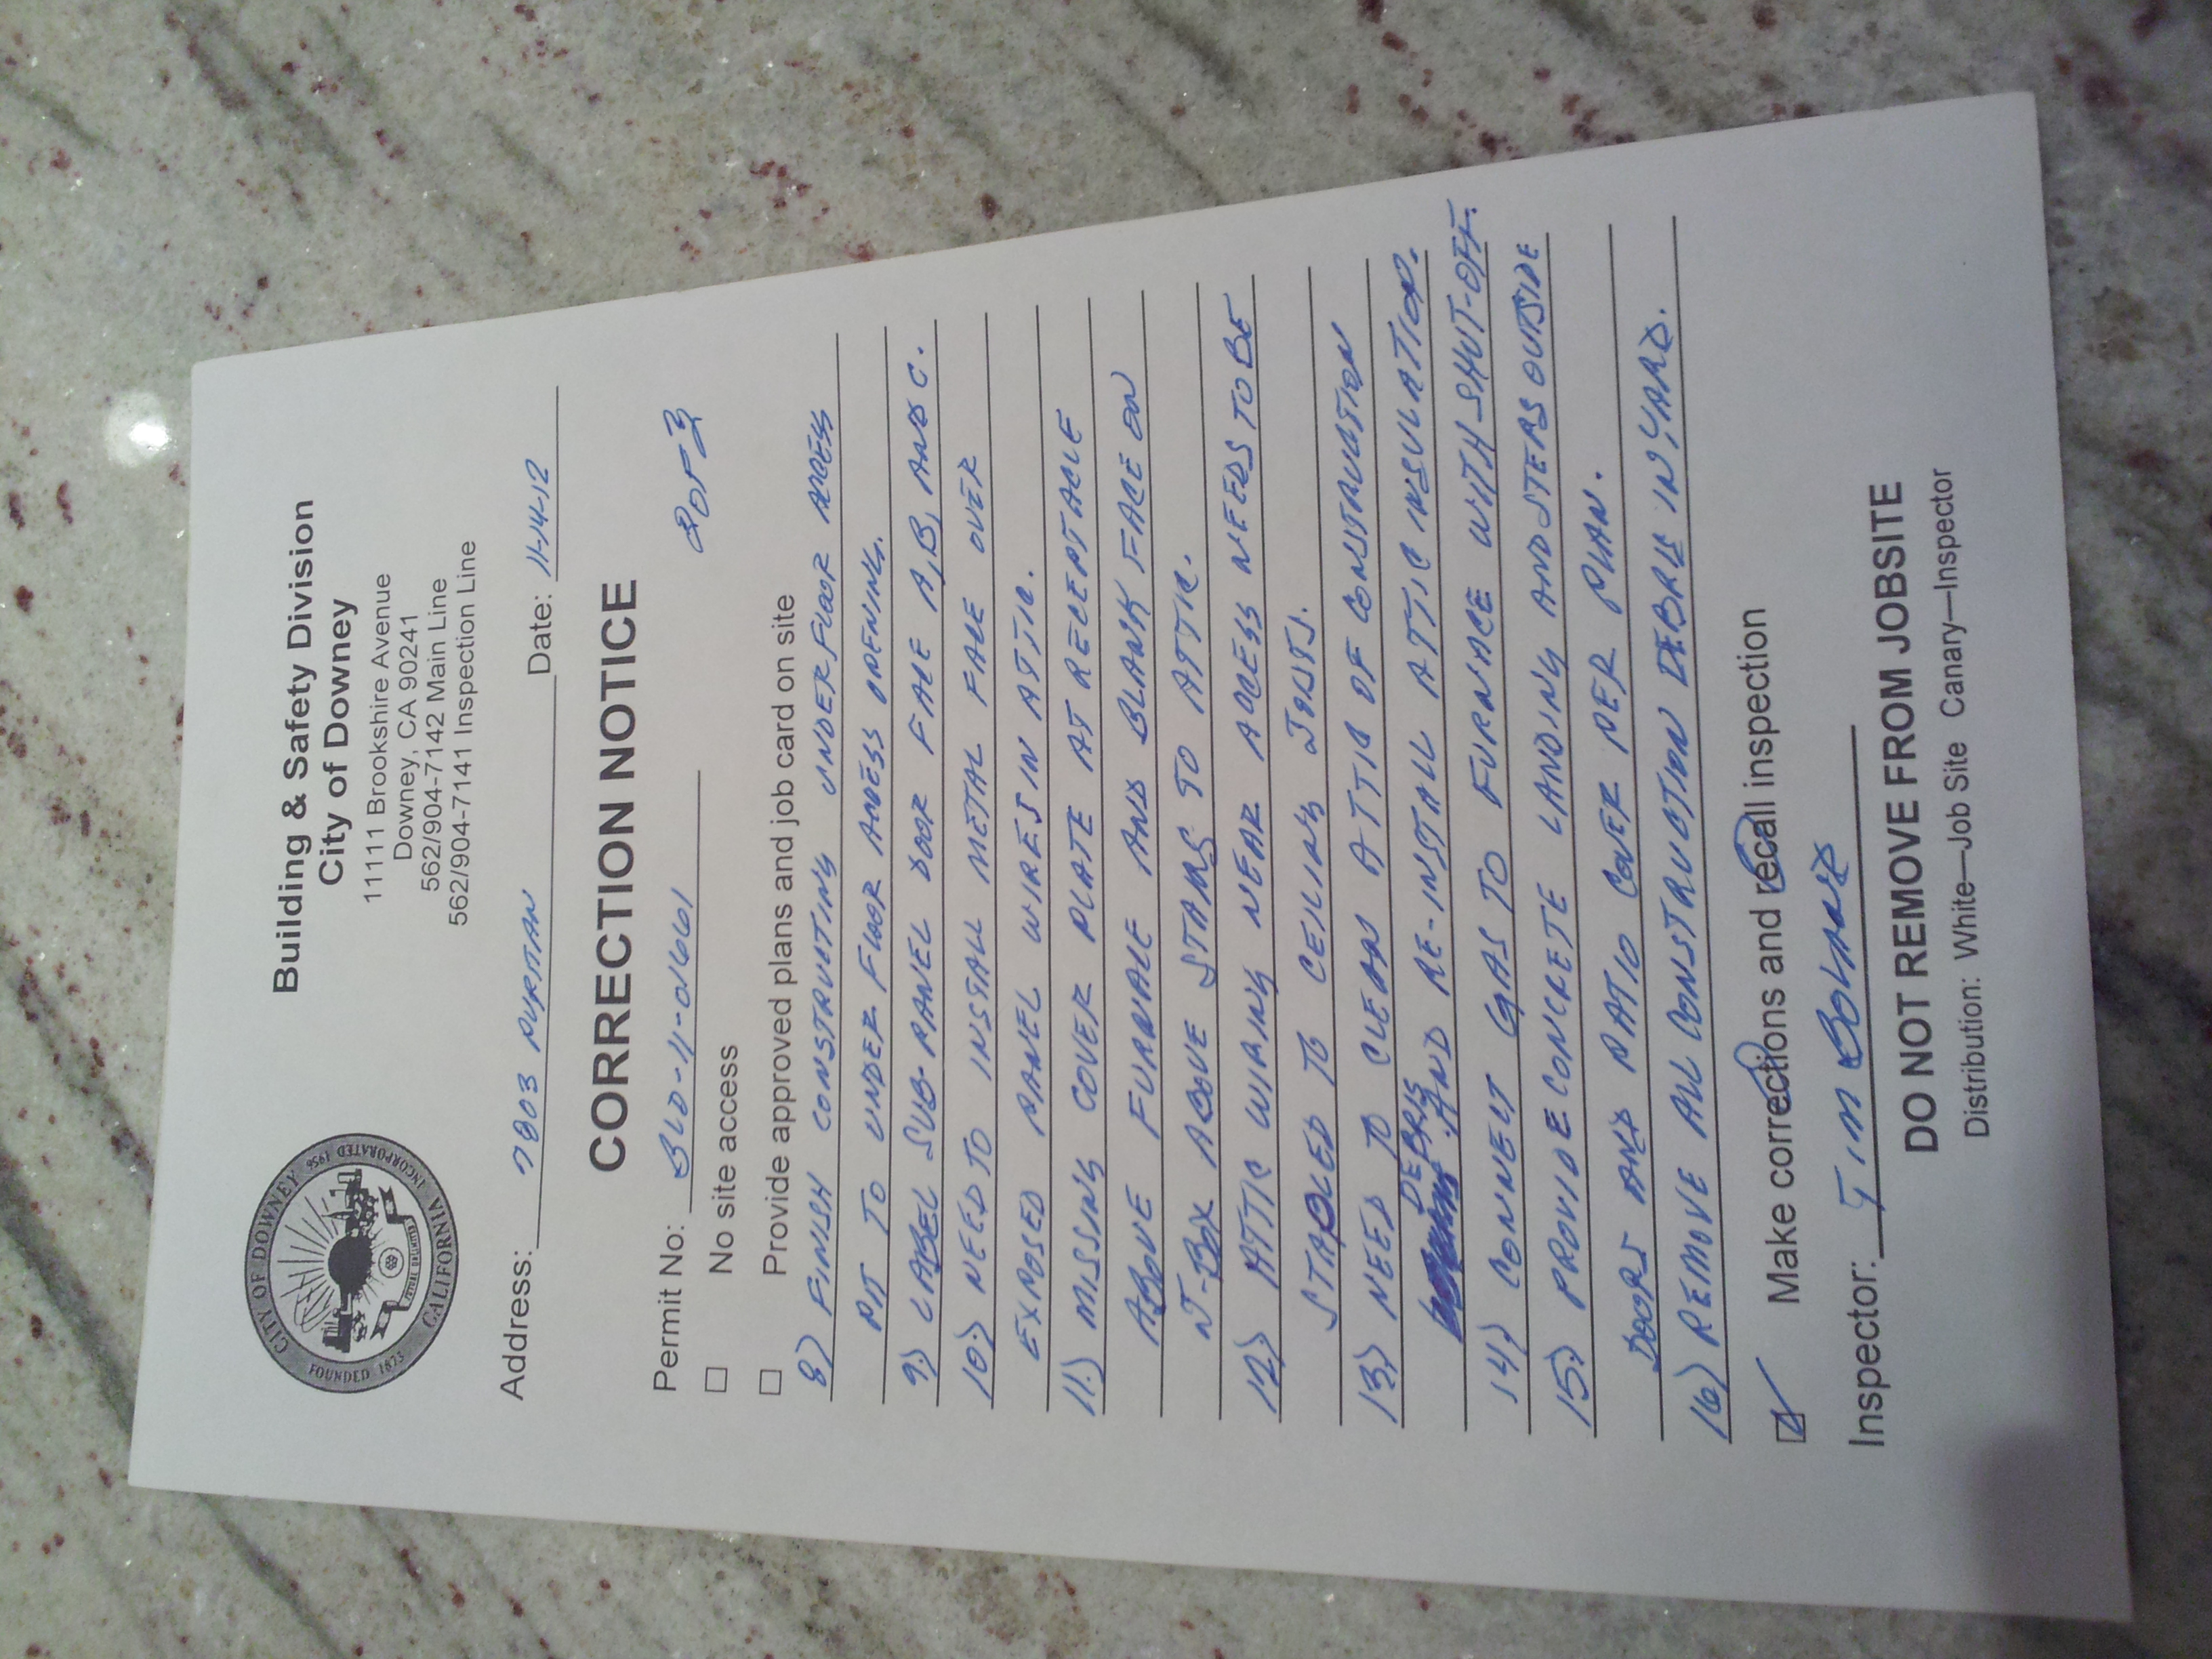 CITY OF DOWNEY
CALIFORNIA
INCORPORATED 1956
FOUNDED 1873
Building & Safety Division
City of Downey
11111 Brookshire Avenue
Downey, CA 90241
562/904-7142 Main Line
562/904-7141 Inspection Line
Address: 7803 PURITAN Date: 11-14-12
CORRECTION NOTICE
Permit No: BLD-11-01661 2 OF 3
No site access
Provide approved plans and job card on site
8) FINISH CONSTRUCTING UNDERFLOOR ACCESS
PIT TO UNDER FLOOR ACCESS OPENING.
9.) LABEL SUB-PANEL DOOR FACE A, B, AND C.
10.) NEED TO INSTALL METAL FACE OVER
EXPOSED PANEL WIRES IN ATTIC.
11.) MISSING COVER PLATE AT RECEPTACLE
ABOVE FURNACE AND BLANK FACE ON
J-BOX ABOVE STAIRS TO ATTIC.
12.) ATTIC WIRING NEAR ACCESS NEEDS TO BE
STAPLED TO CEILING JOISTS.
13.) NEED TO CLEAN ATTIC OF CONSTRUCTION
DEBRIS AND RE-INSTALL ATTIC INSULATION.
14) CONNECT GAS TO FURNACE WITH SHUT-OFF.
15.) PROVIDE CONCRETE LANDING AND STEPS OUTSIDE
DOORS AND PATIO COVER PER PLAN.
16) REMOVE ALL CONSTRUCTION DEBRIS IN YARD.
Make corrections and recall inspection
Inspector: TIM
DO NOT REMOVE FROM JOBSITE
Distribution: White—Job Site Canary—Inspector